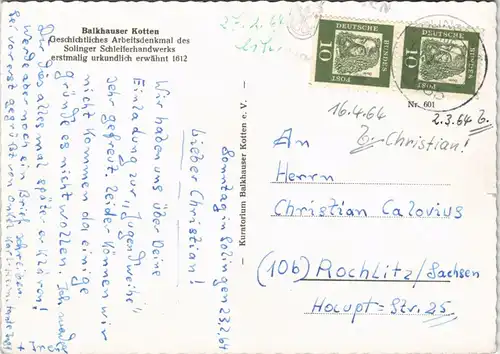 Balkhauser Kotten
Geschichtliches Arbeitsdenkmal des
Solinger Schleiferhandwerks
erstmalig urkundlich erwähnt 1612
27.2.64
DEUTSCHE
BUNDES
POST
10
DEUTSCHE
BUNDES
POST
10
Nr. 601
16.4.64
2.3.64 B.
B. Christian!
— Kuratorium Balkhauser Kotten e. V. —
Sonntag in Solingen 23.2.64
Lieber Christian!
Wir haben uns über Deine
Einladung zur "Jugendweihe"
sehr gefreut. Leider können wir
nicht kommen da einige
Gründe es nicht wollen. Ich werde
Dir dies alles mal später erklären!
Werde aber noch ein Brief schreiben.
Sei vorerst gegrüßt von Onkel Karlheinz, Tante
+
An
Herrn
Christian Calovius
(10b) Rochlitz/Sachsen
Haupt-Str. 25